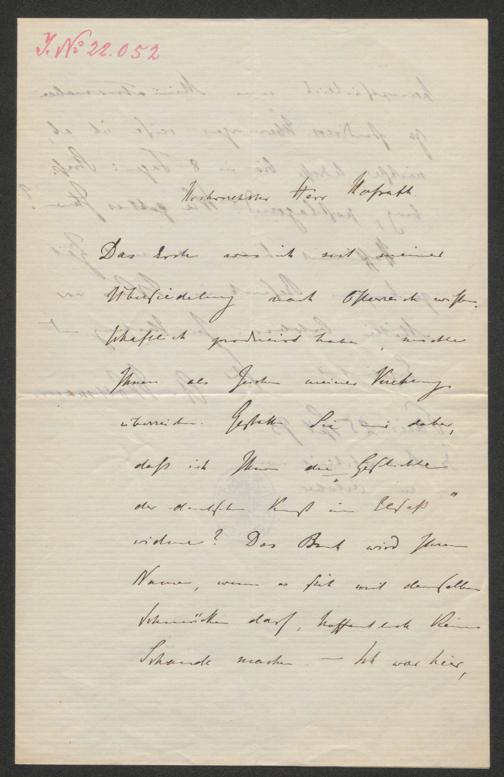 J. No 22.052
Hochverehrter Herr Hofrath
Das Erste was ich seit meiner
Übersiedelung nach Österreich wissen-
schaftlich producirt habe, möchte
Ihnen als Zeichen meiner Verehrung
überreichen. Gestatten Sie mir daher,
daß ich Ihnen die „Geschichte
der deutschen Kunst im Elsaß"
widme? Das Buch wird Ihrem
Namen, wenn es sich mit demselben
schmücken darf, hoffentlich keine
Schande machen. — Ich war hier,